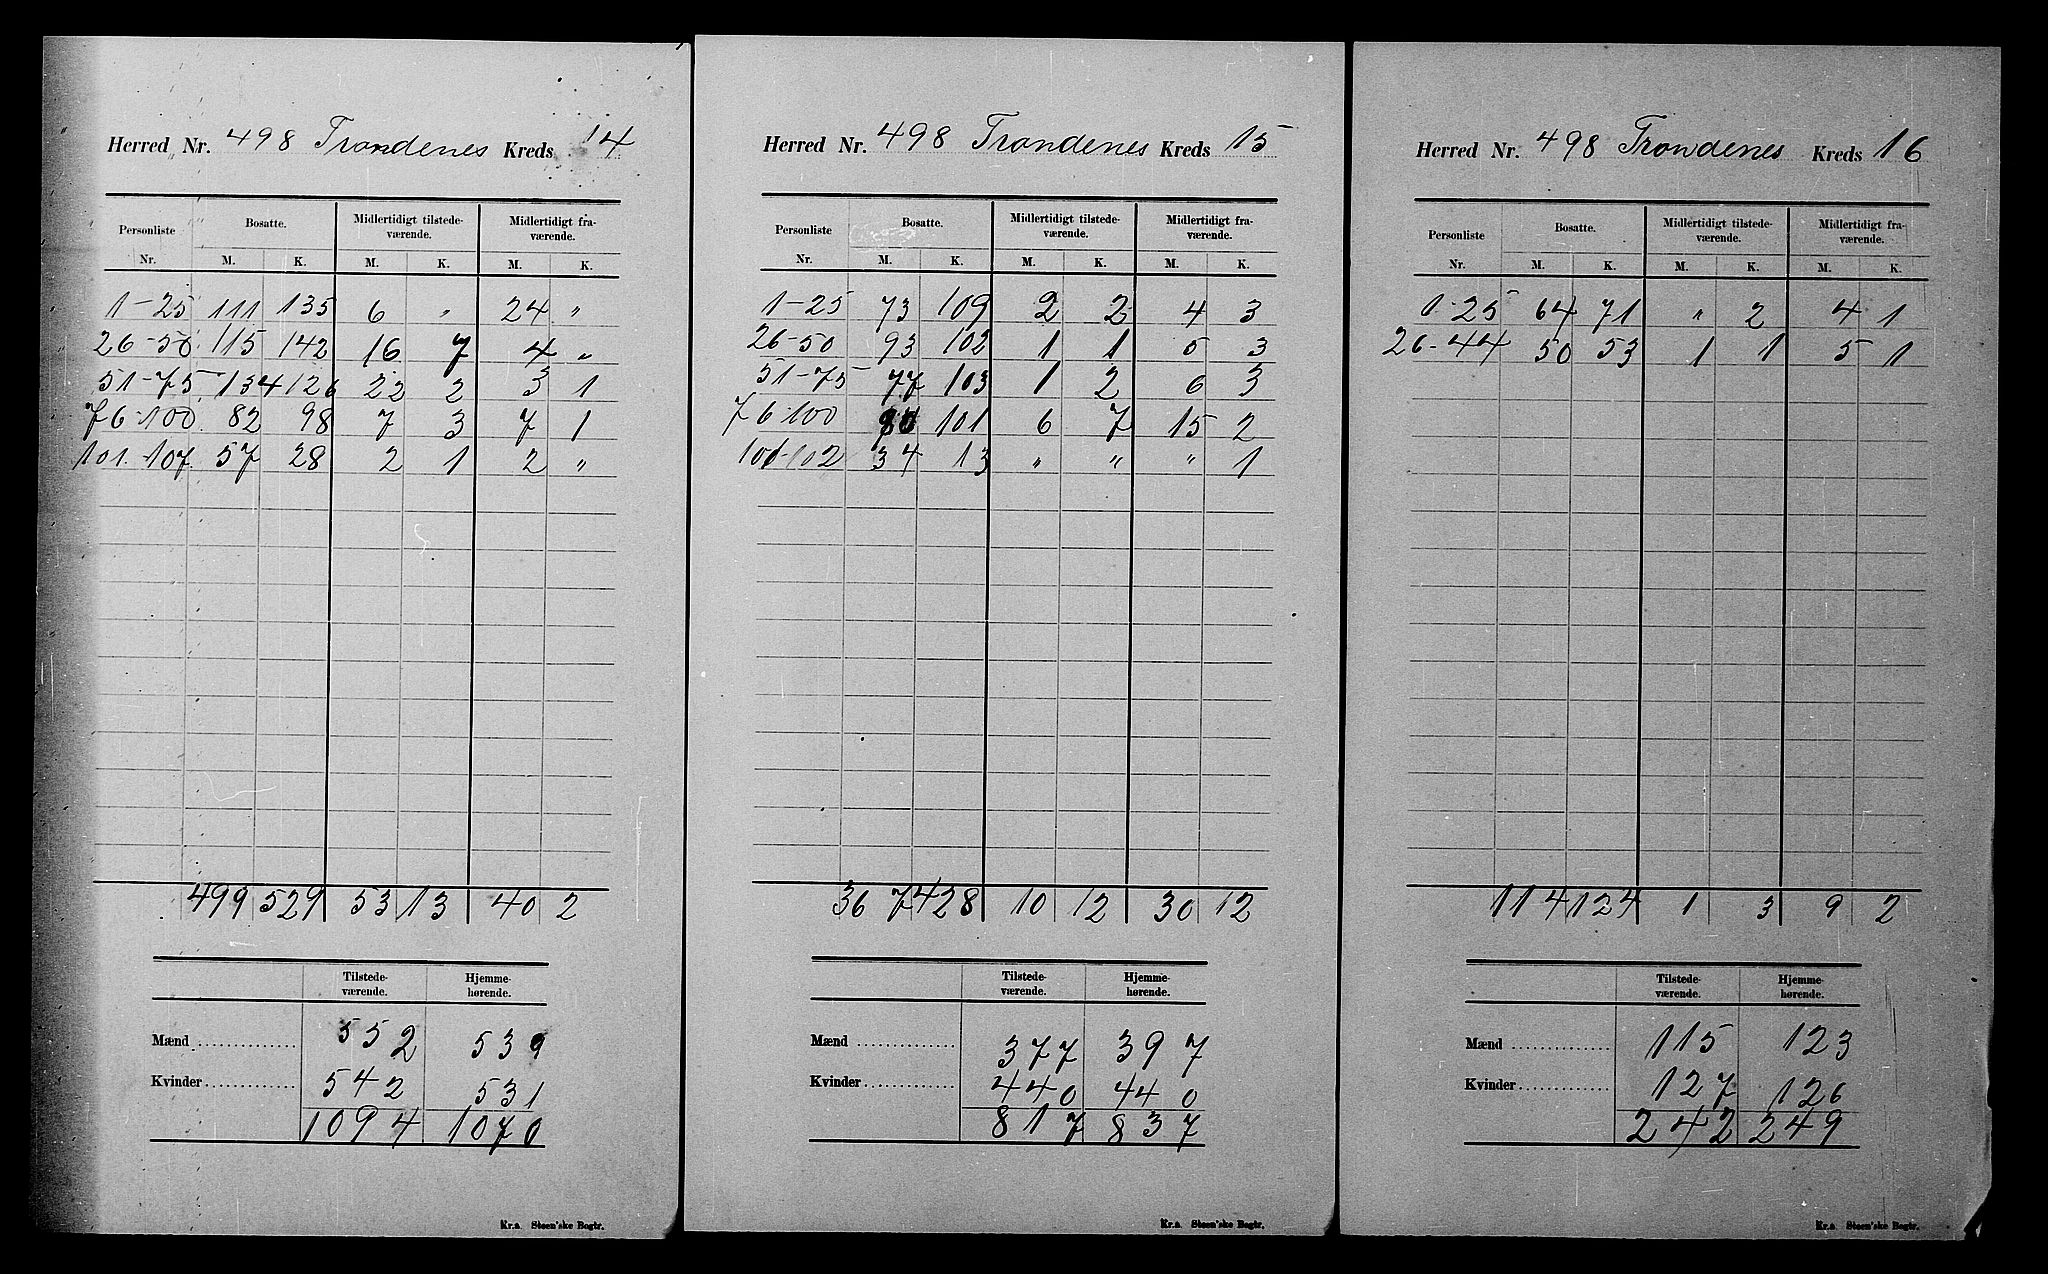 Herred Nr. 498 Trondenes Kreds 14
Personliste Bosatte. Midlertidigt tilstede- Midlertidigt fra-
værende. værende.
Nr. M. K. M. K. M. K.
1-25 111 135 6 „ 24 „
26-50 115 142 16 7 4 „
51-75 134 126 22 2 3 1
76-100 82 98 7 3 7 1
101-107 57 28 2 1 2 „
499 529 53 13 40 2
Tilstede- Hjemme-
værende. hørende.
Mænd 552 539
Kvinder 542 531
1094 1070
Kr.a. Steen'ske Bogtr.
Herred Nr. 498 Trondenes Kreds 15
Personliste Bosatte. Midlertidigt tilstede- Midlertidigt fra-
værende. værende.
Nr. M. K. M. K. M. K.
1-25 73 109 2 2 4 3
26-50 93 102 1 1 5 3
51-75 77 103 1 2 6 3
76-100 90 101 6 7 15 2
101-102 34 13 „ „ „ 1
367 428 10 12 30 12
Tilstede- Hjemme-
værende. hørende.
Mænd 377 397
Kvinder 440 440
817 837
Kr.a. Steen'ske Bogtr.
Herred Nr. 498 Trondenes Kreds 16
Personliste Bosatte. Midlertidigt tilstede- Midlertidigt fra-
værende. værende.
Nr. M. K. M. K. M. K.
1-25 64 71 „ 2 4 1
26-44 50 53 1 1 5 1
114 124 1 3 9 2
Tilstede- Hjemme-
værende. hørende.
Mænd 115 123
Kvinder 127 126
242 249
Kr.a. Steen'ske Bogtr.